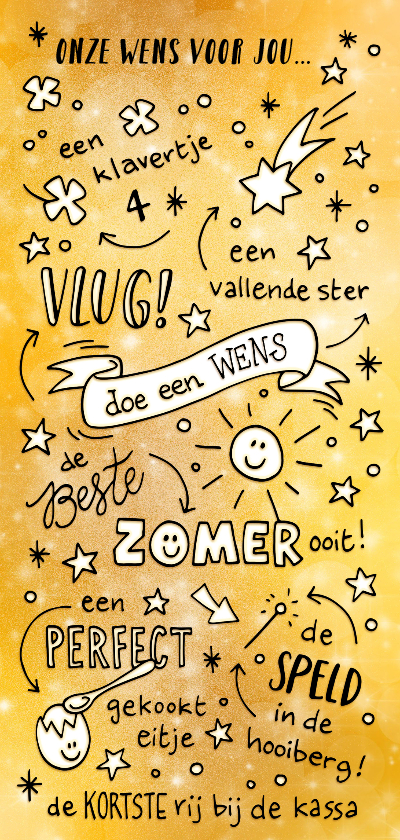 ONZE WENS VOOR JOU...
een
klavertje
4
een
vallende ster
VLUG!
doe een WENS
de
Beste
ZOMER ooit!
een
PERFECT
gekookt
eitje
de
SPELD
in de
hooiberg!
de KORTSTE rij bij de kassa